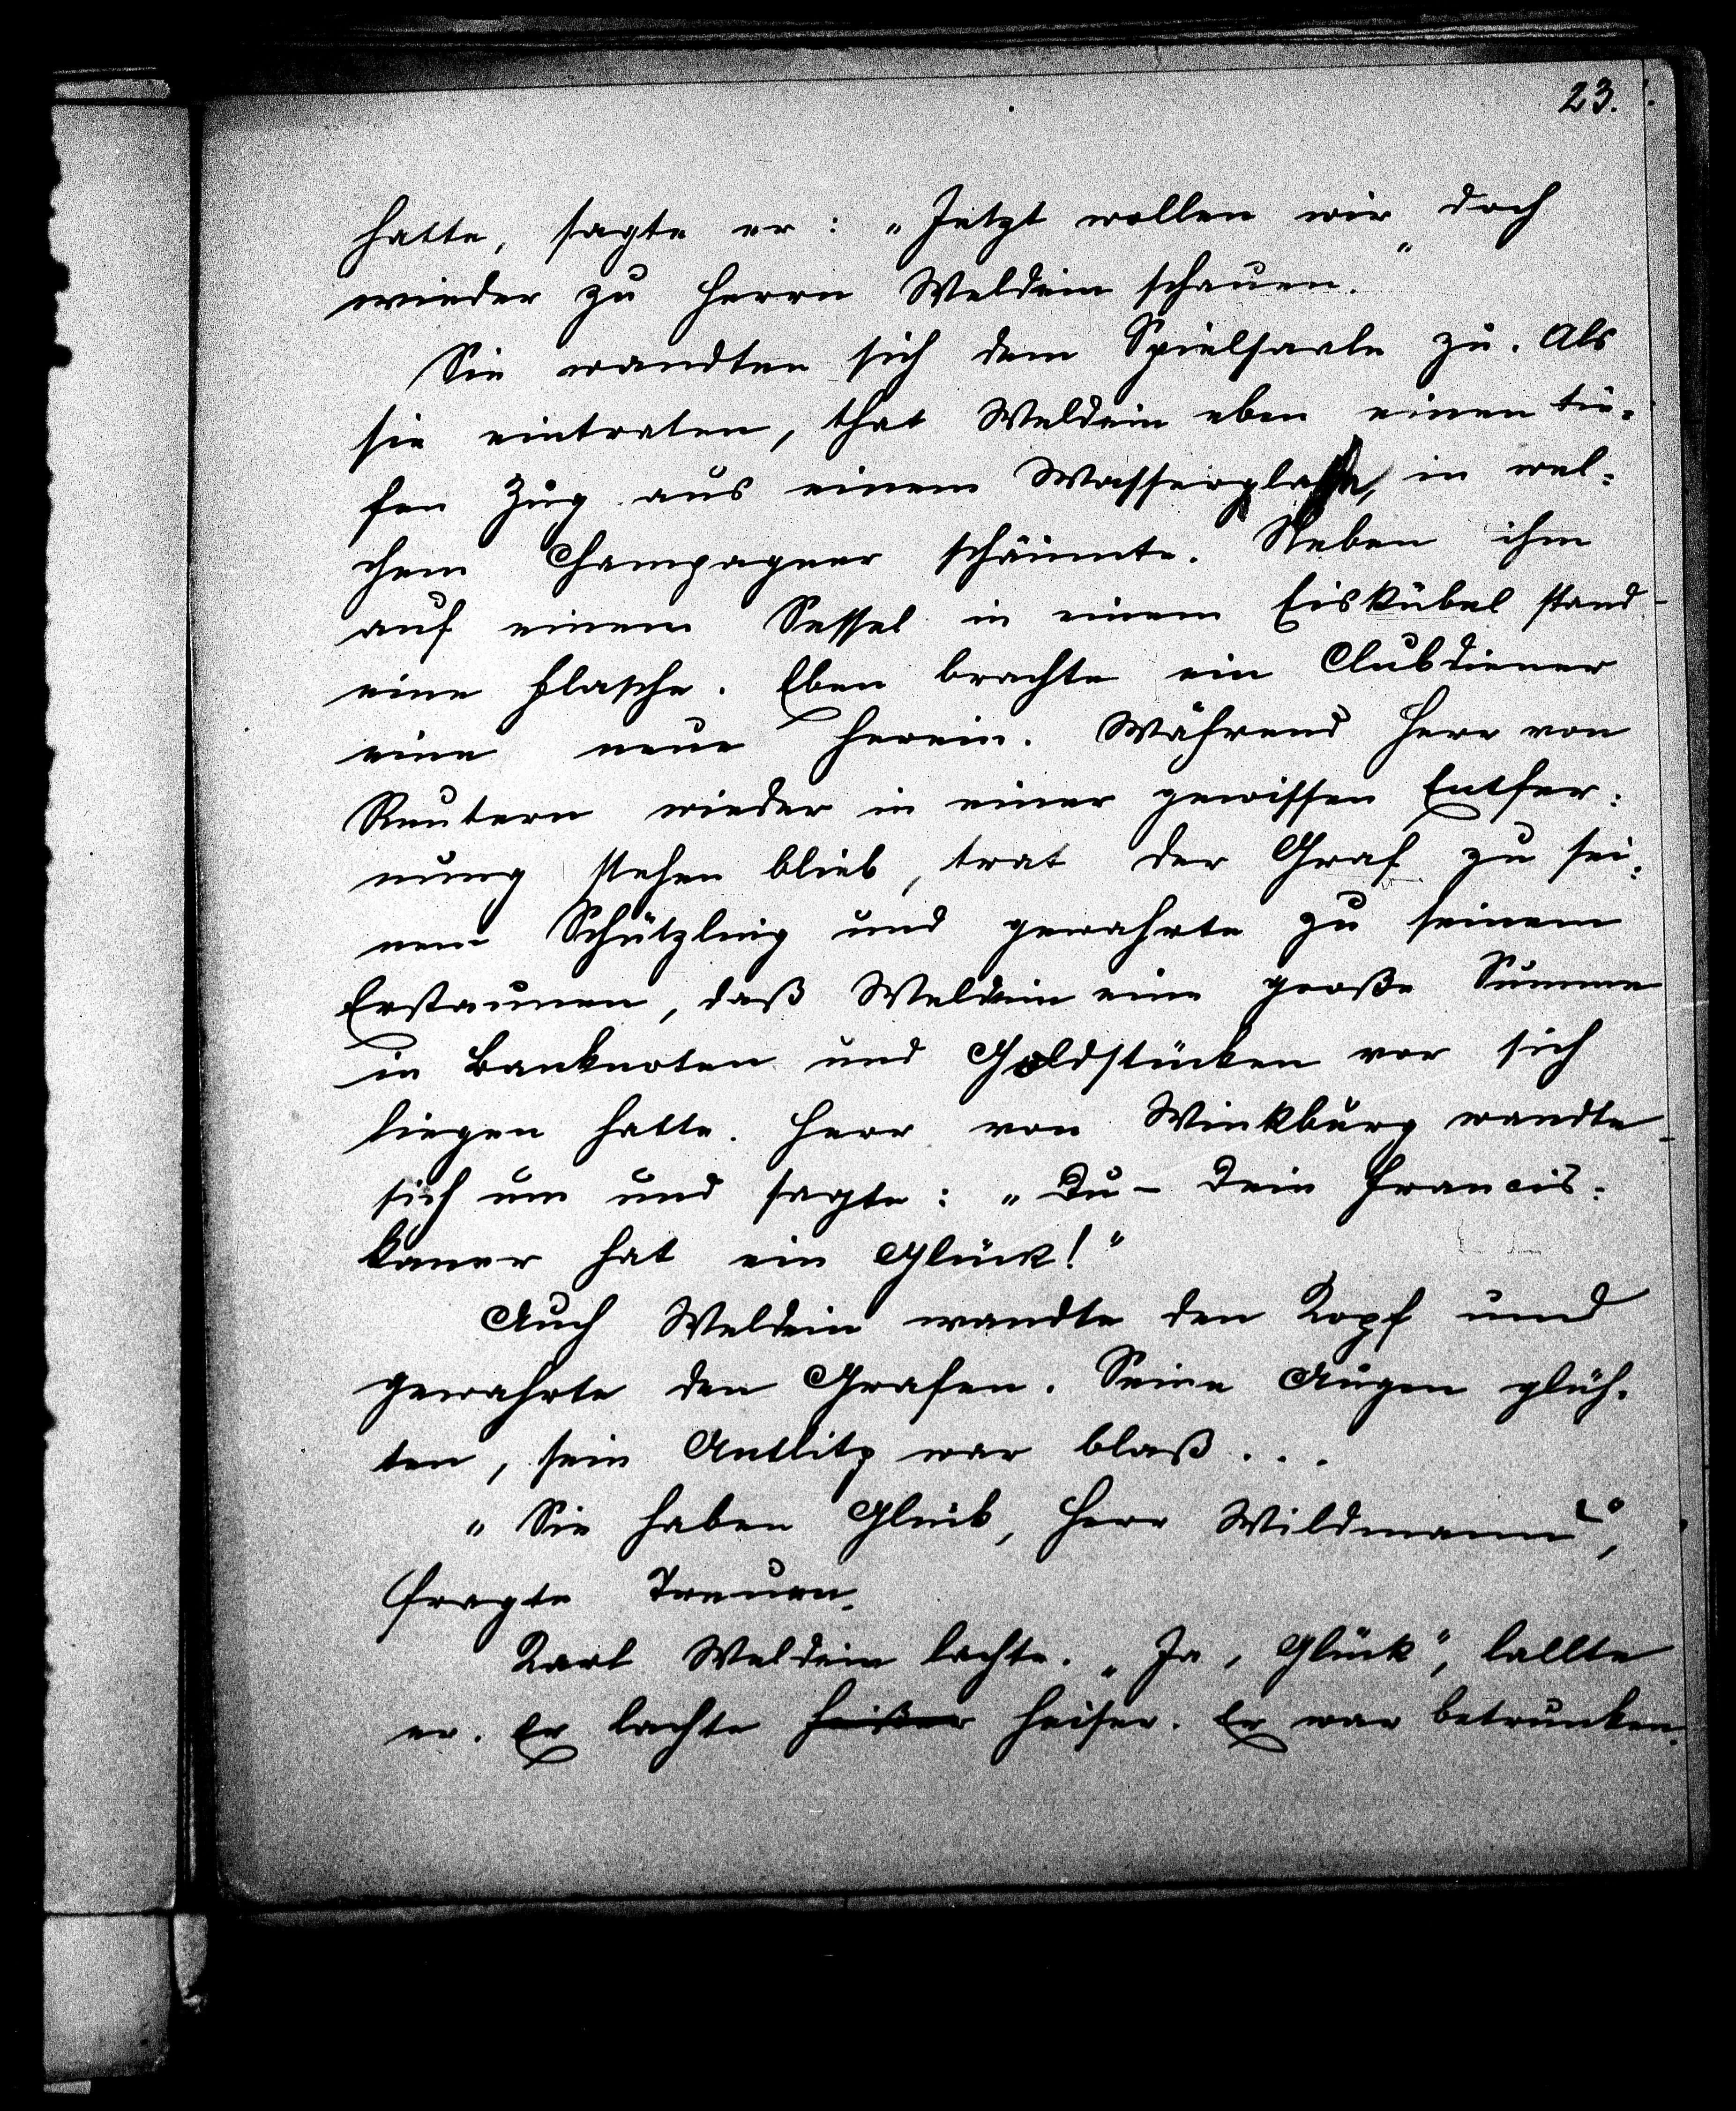 23.
hatte, sagte er: „Jetzt wollen wir doch
wieder zu Herrn Weldein schauen."
Sie wandten sich dem Spielsaale zu. Als
sie eintraten, that Weldein eben einen tie=
fen Zug aus einem Wasserglase, in wel=
chem Champagner schäumte. Neben ihm
auf einem Sessel in einem Eiskübel stand
eine Flasche. Eben brachte ein Clubdiener
eine neue herein. Während Herr von
Reutern wieder in einer gewissen Entfer=
nung stehen blieb, trat der Graf zu sei=
nem Schützling und gewahrte zu seinem
Erstaunen, daß Weldein eine große Summe
in Banknoten und Goldstücken vor sich
liegen hatte. Herr von Winkburg wandte
sich um und sagte: „Du – Dein Francis=
kaner hat ein Glück!"
Auch Weldein wandte den Kopf und
gewahrte den Grafen. Seine Augen glüh=
ten, sein Antlitz war blaß...
„Sie haben Glück, Herr Wildmann?",
fragte Treuen.
Karl Weldein lachte. „Ja, Glück", lallte
er. Er lachte heißer heiser. Er war betrunken.